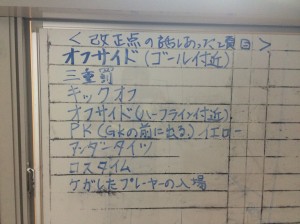 ＜改正点の話しあった項目＞
オフサイド(ゴール付近)
三重罰
キックオフ
オフサイド(ハーフライン付近)
PK(GKの前に出る)イエロー
アンダータイツ
ロスタイム
ケガしたプレーヤーの入場